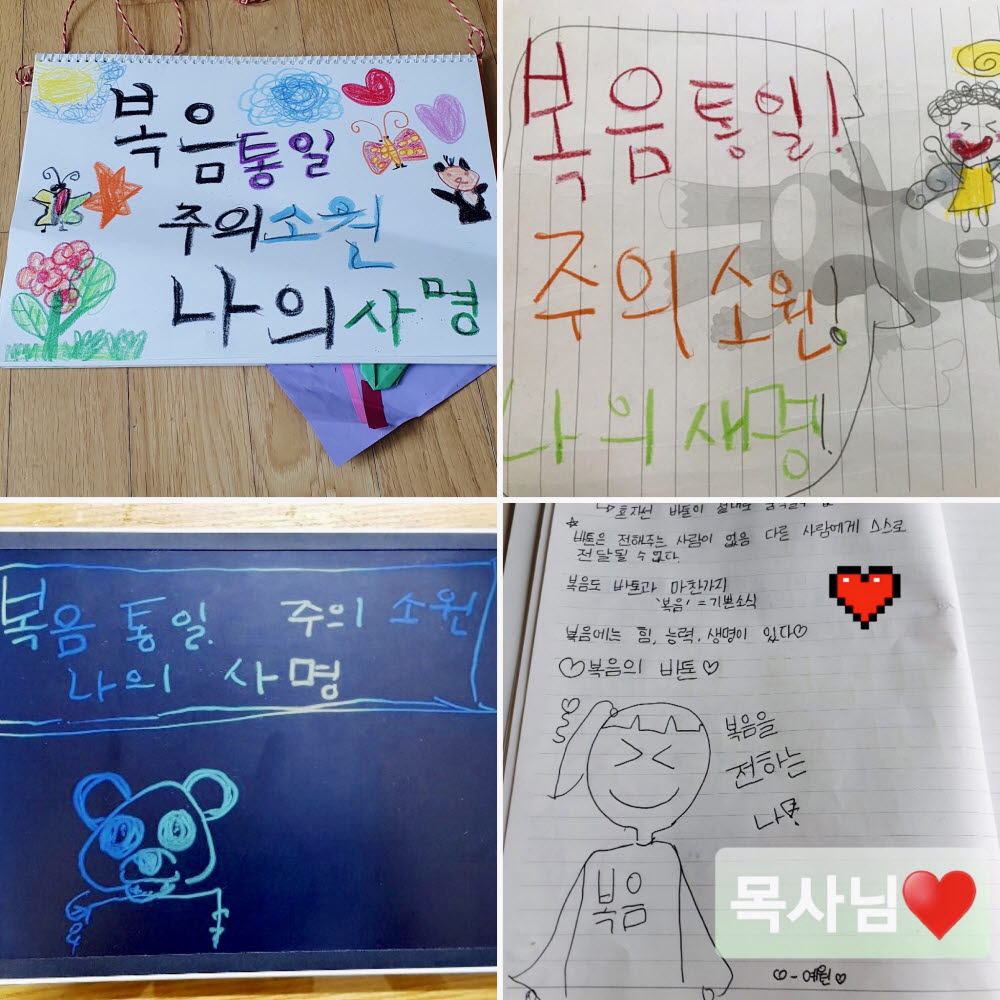 복음통일
주의소원
나의사명
복음통일!
주의소원!
나의새명!
복음 통일 주의 소원
나의 사명
바톤은 전해주는 사람이 없음 다른 사람에게 스스로
전달될 수 없다.
복음도 바톤과 마찬가지
'복음' = 기쁜소식
복음에는 힘, 능력, 생명이 있다♡
♡복음의 바톤♡
복음을
전하는
나!
복음
목사님❤️
♡-예원♡